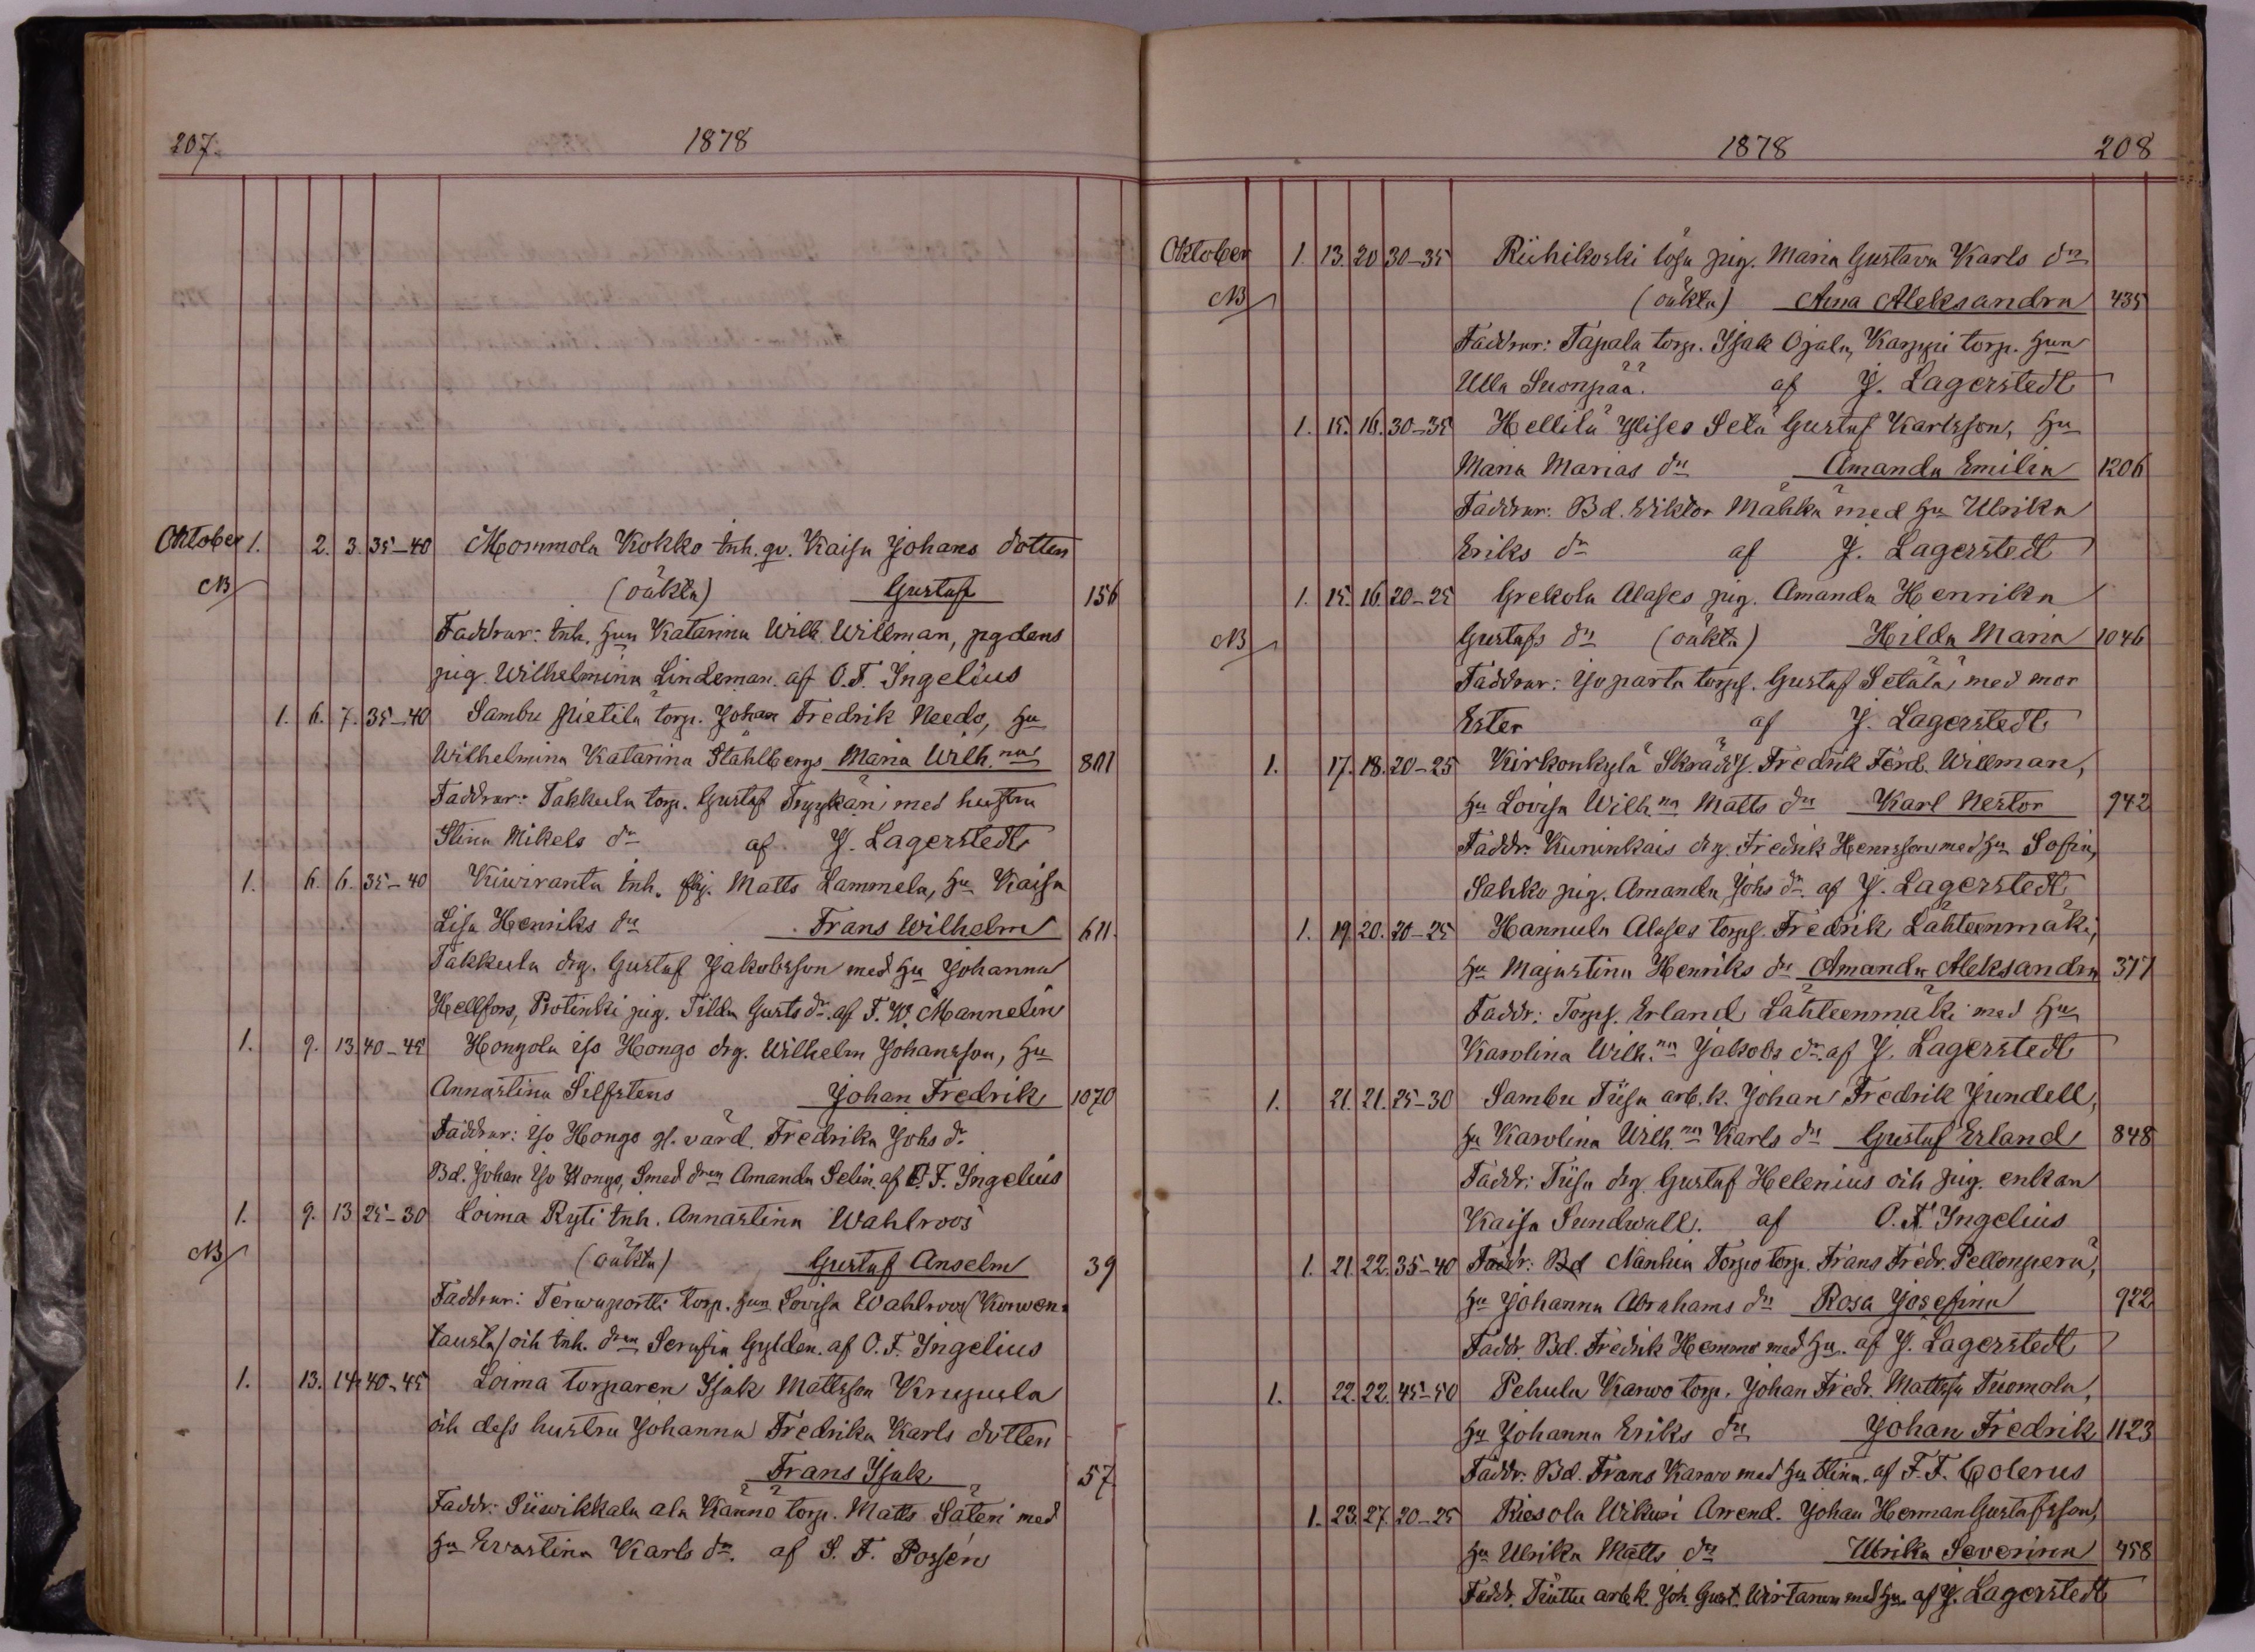 207. 1878
Oktober 1. 2. 3. 35-40 Mommola Kokko inh. qv. Kaisa Johans dotter
NB (oäkta) Gustaf 156
Faddrar: inh. hun Katarina Wilh. Willman, pgdens
pig. Wilhelmina Lindeman. af O. F. Ingelius
1. 6. 7. 35-40 Sambu Pietilä torp. Johan Fredrik Needs, hu
Wilhelmina Katarina Ståhlbergs Maria Wilh.na 801
Faddrar: Takkula torp. Gustaf med hustru
Stina Mikels dr af J. Lagerstedt
1. 6. 6. 35-40 Kiviranta inh. Matts Lammela, hu Kaisa
Lisa Henriks dr Frans Wilhelm 611.
Takkula drg. Gustaf Jakobsson med hu Johanna
Hellfors, Protinki pig. Tilda Gusts dr. af F. W. Mannelin
1. 9. 13 40-45 Hongola iso Hongo drg. Wilhelm Johansson, hu
Annastina Silfstens Johan Fredrik 1070
Faddrar: iso Hongo gl. värd. Fredrika Johs dr
Bd. Johan iso Hongo, Smed dren Amanda Selin. af O. F. Ingelius
1. 9. 13 25-30 Loima Ryti inh. Annastina Wahlroos
NB (oäkta) Gustaf Anselm 39
Faddrar: Terwaportti torp. hun Lovisa Wahlroos (Korwen-
tausta) och inh. dren Serafia Gylden. af O. F. Ingelius
1. 13. 14. 40-45 Loima torparen Isak Mattsson Krupula
och dess hustru Johanna Fredrika Karls dotter
Frans Isak 57
Faddr: Siiwikkala ala Kännö torp. Matts Säteri med
hu Evastina Karls dr. af S. F. Possén
1878 208
Oktober 1. 13. 20 30-35 Riihikoski lösa pig. Maria Gustava Karls dr
NB (oäkta) Aina Aleksandra 435
Faddrar: Tapala torp. Isak Ojala, Karppi torp. hun
Ulla Suonpää. af J. Lagerstedt
1. 15. 16. 30-35 Hellilä Ylises Selä Gustaf Karlsson, hu
Maria Marias dr Amanda Emilia 1206
Faddrar: Bd. Wiktor Mähkä med hu Ulrika
Eriks dr af J. Lagerstedt
1. 15. 16. 20-25 Grekola Alases pig. Amanda Henrika
NB Gustafs dr (oäkta) Hilda Maria 1046
Faddrar: Joparta torps. Gustaf Setälä, med mor
Ester af J. Lagerstedt
1. 17. 18. 20-25 Kirkonkylä Skrädd. Fredrik Ferd. Willman,
hu Lovisa Wilh.na Matts dr Karl Nestor 942
Faddr: Kuninkais drg. Fredrik Henrsson med hu Sofia,
Sahko pig. Amanda Johs dr. af J. Lagerstedt
1. 19 20. 20-25 Hannula Alases torps. Fredrik Lähteenmäki,
hu Majastina Henriks dr Amanda Aleksandra 377
Faddr: Torps. Erland Lähteenmäki med hu
Karolina Wilh.na Jakobs dr. af J. Lagerstedt
1. 21. 21. 25-30 Sambu Tiisa arb. k. Johan Fredrik Jundell,
hu Karolina Wilh.na Karls dr Gustaf Erland 848
Faddr: Tiisa drg. Gustaf Helenius och pig. enkan
Kaisa Sundwall. af O. F. Ingelius
1. 21. 22. 35-40 Faddr: Bd Nanhia Torpo torp. Frans Fredr. Pellonperä,
hu Johanna Abrahams dr Rosa Josefina 922
Faddr. Bd. Fredrik Hemmo med hu. af J. Lagerstedt
1. 22. 22. 45-50 Pehula Karwo torp. Johan Fredr. Mattss Tuomola,
hu Johanna Eriks dr Johan Fredrik 1123
Faddr: Bd. Frans Karwo med hu Stina. af F. F. Colerus
1. 23. 27. 20-25 Riesola Wikuri Arrend. Johan Herman Gustafsson,
hu Ulrika Matts dr Ulrika Severina 458
Faddr. arb. k. Joh. Gust. Wirtanen med hu. af J. Lagerstedt